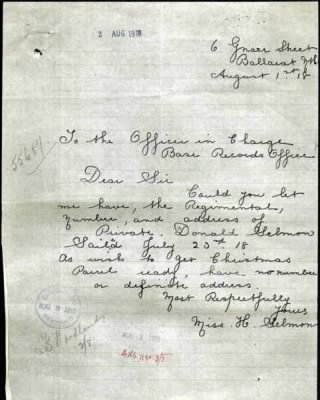 2 AUG 1918
6 Gnarr Street
Ballarat Nth
August 1st 18
To the Officer in Charge
Base Records Office
Dear Sir
Could you let
me have, the Regimental,
Number, and address of
Private. Donald Selmon
Sail'd July 23rd 18
As wish to get Christmas
Parcel ready, have no number
or definate address
Most Respectfully
Yours
Miss. H. Selmon